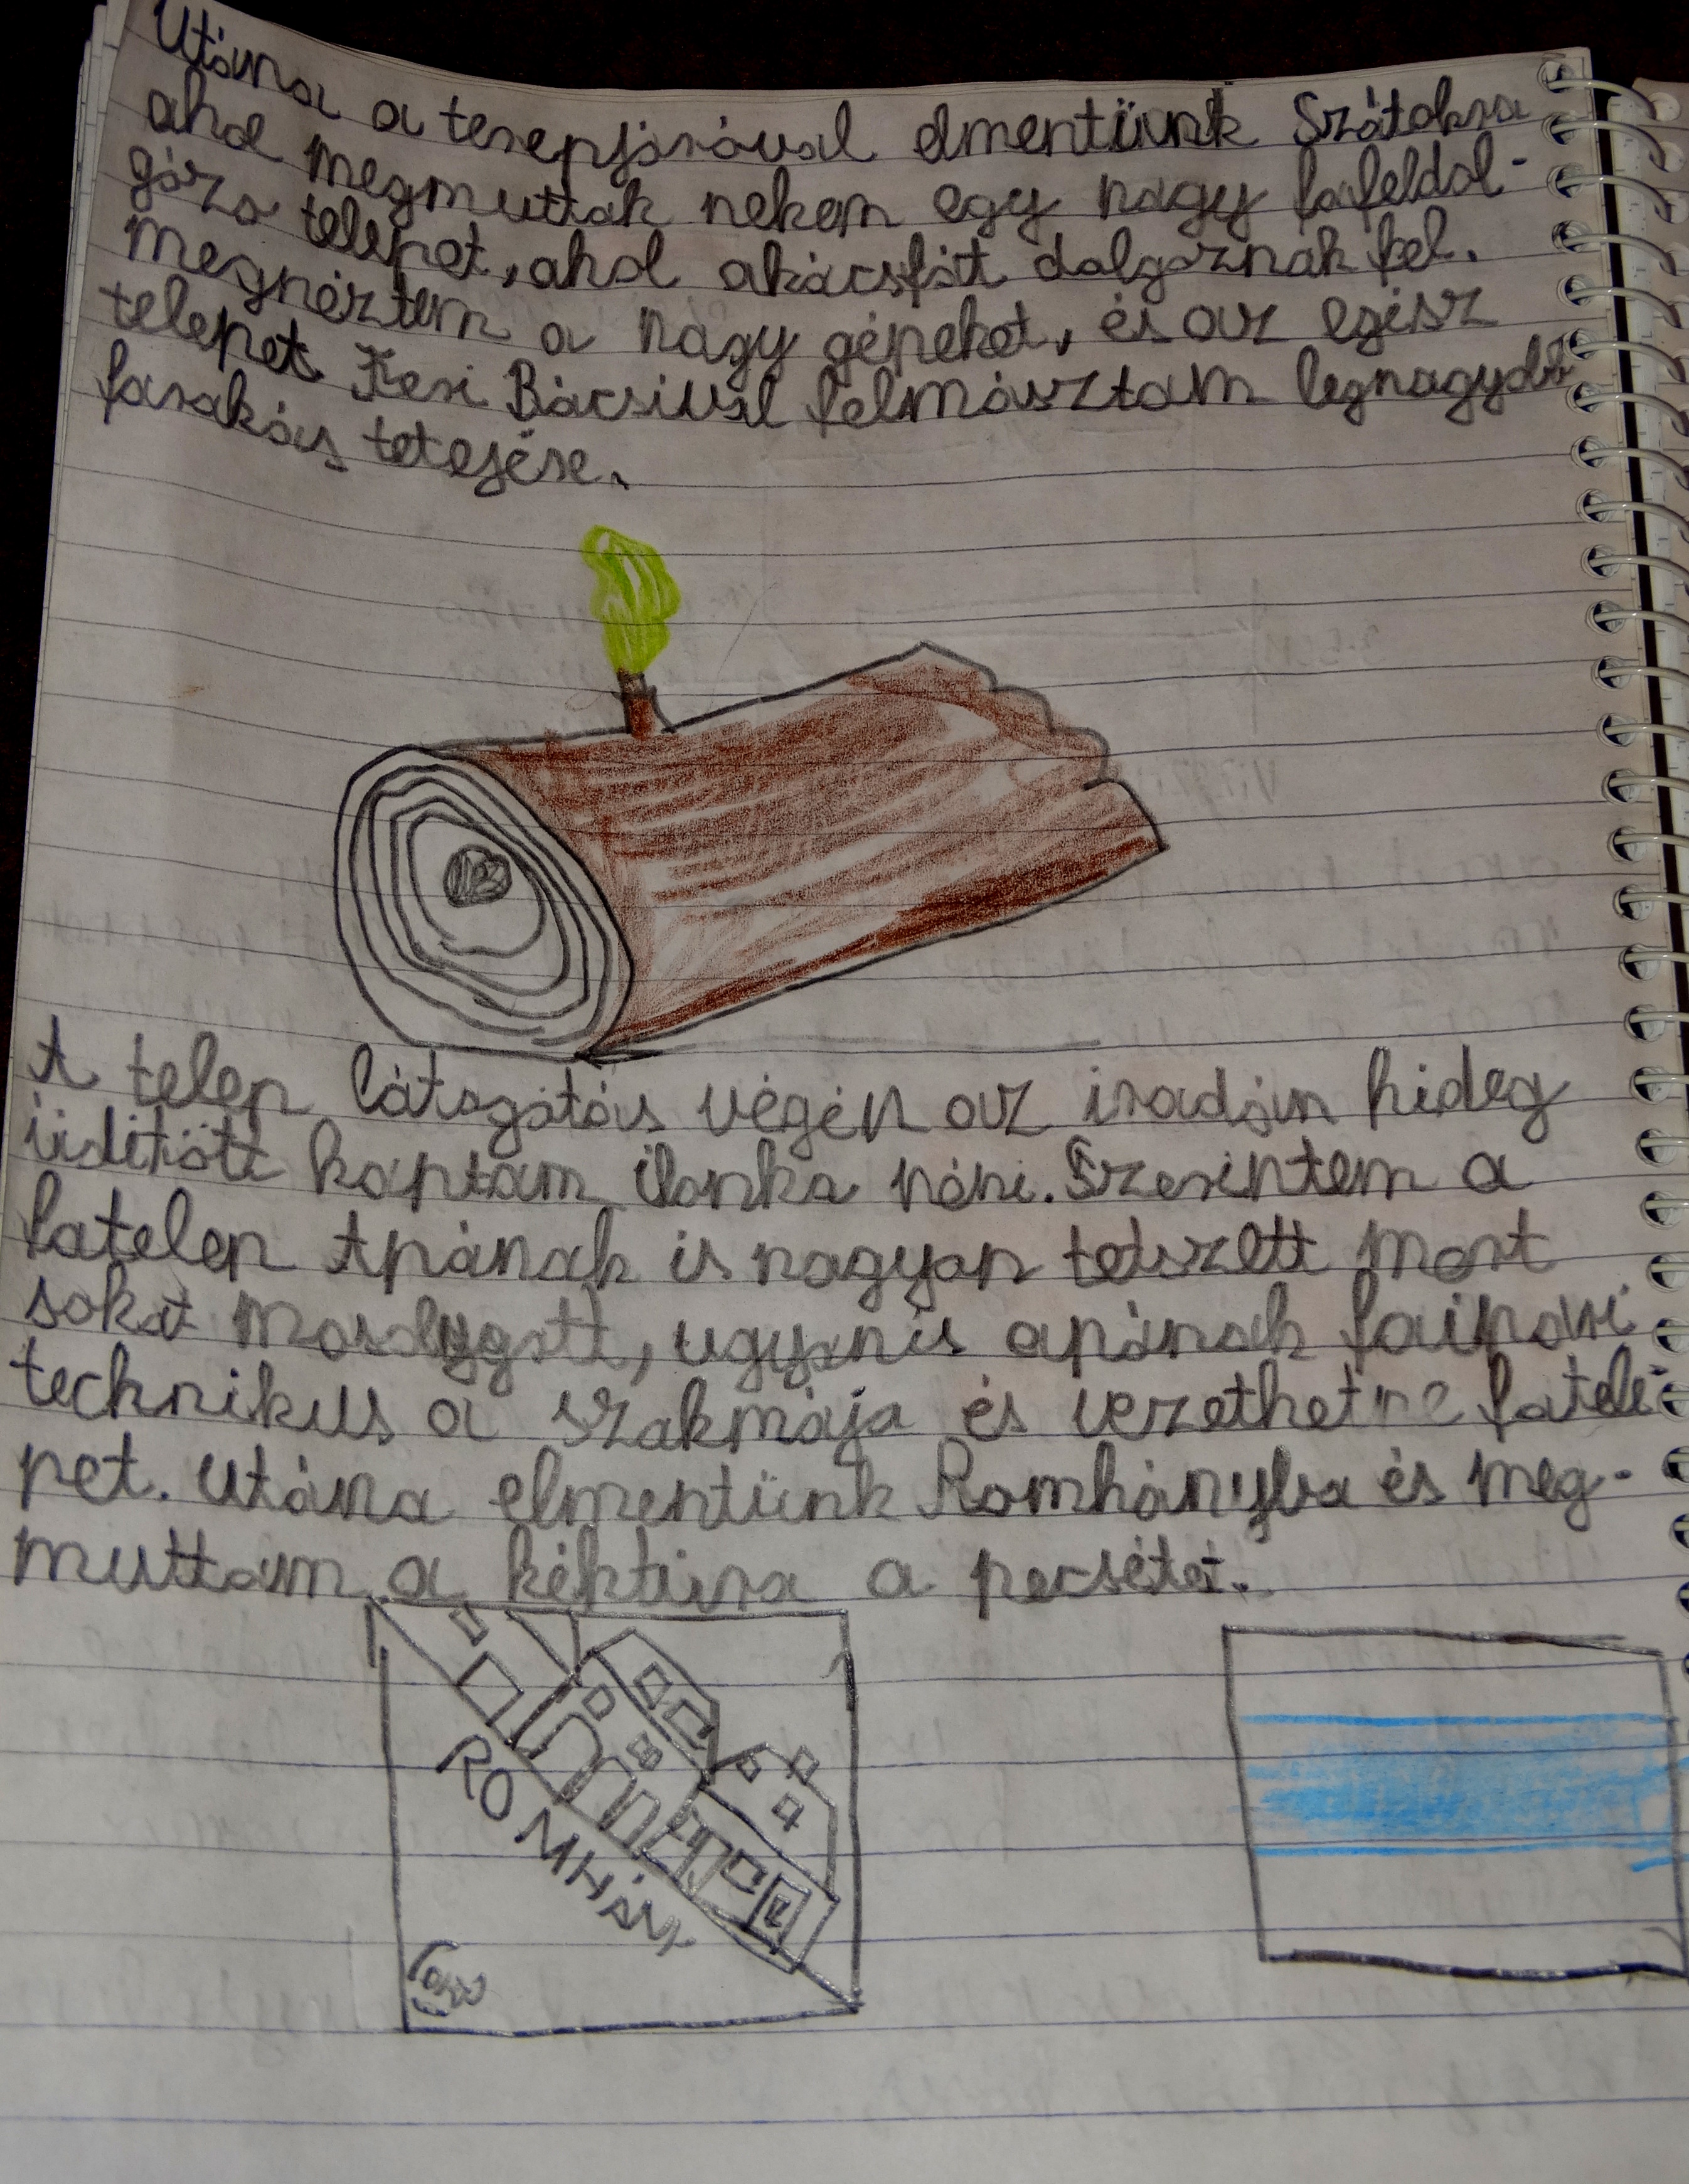 Utána a terepjáróval elmentünk Szátokra
ahol megmuttak nekem egy nagy fafeldol-
gozo telepet, ahol akácsfátt dolgoznak fel.
megnéztem a nagy gépeket, és az egész
telepet Feri Bácsival felmásztam legnagyobb
farakás tetejére.
A telep látogatás végén az irodán hideg
üditött kaptam ilonka néni. Szerintem a
fatelep Apának is nagyon tetszett mert
sokat mosolygott, ugyanis apának faipari
technikus a szakmája és vezethetne fatele-
pet. utána elmentünk Romhányba és meg-
muttam a kéktúra a pecsétet.
ROMHÁNY